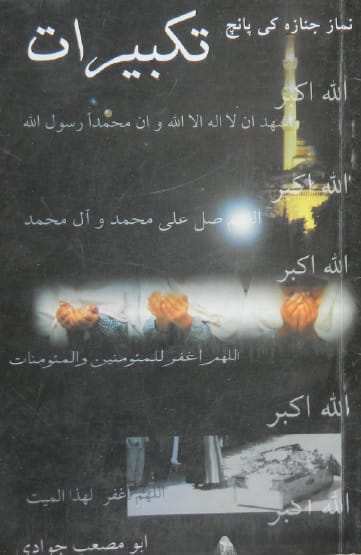 نماز جنازہ کی پانچ
تکبیرات
الله اکبر
اشهد ان لا اله الا الله و ان محمداً رسول الله
الله اکبر
اللهم صل علی محمد و آل محمد
الله اکبر
اللهم اغفر للمئومنین والمئومنات
الله اکبر
اللهم اغفر لهذا المیت
الله اکبر
ابو مصعب جوادی